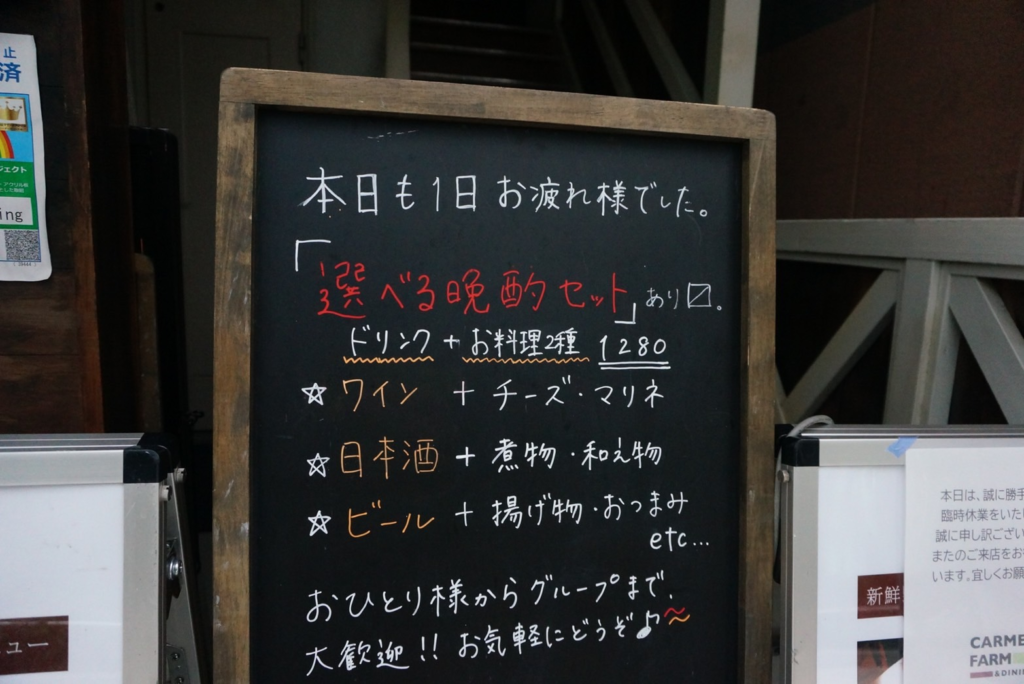 本日も1日 お疲れ様でした。
「選べる晩酌セット」あり〼。
ドリンク + お料理2種 1280
☆ ワイン + チーズ・マリネ
☆ 日本酒 + 煮物・和え物
☆ ビール + 揚げ物・おつまみ
etc...
おひとり様からグループまで、
大歓迎!! お気軽にどうぞ♪〜
止
済
ジェクト
ing
ュー
本日は、誠に勝手
臨時休業をいた
誠に申し訳ござい
またのご来店をお
います。宜しくお願
新鮮
CARME
FARM
& DINI